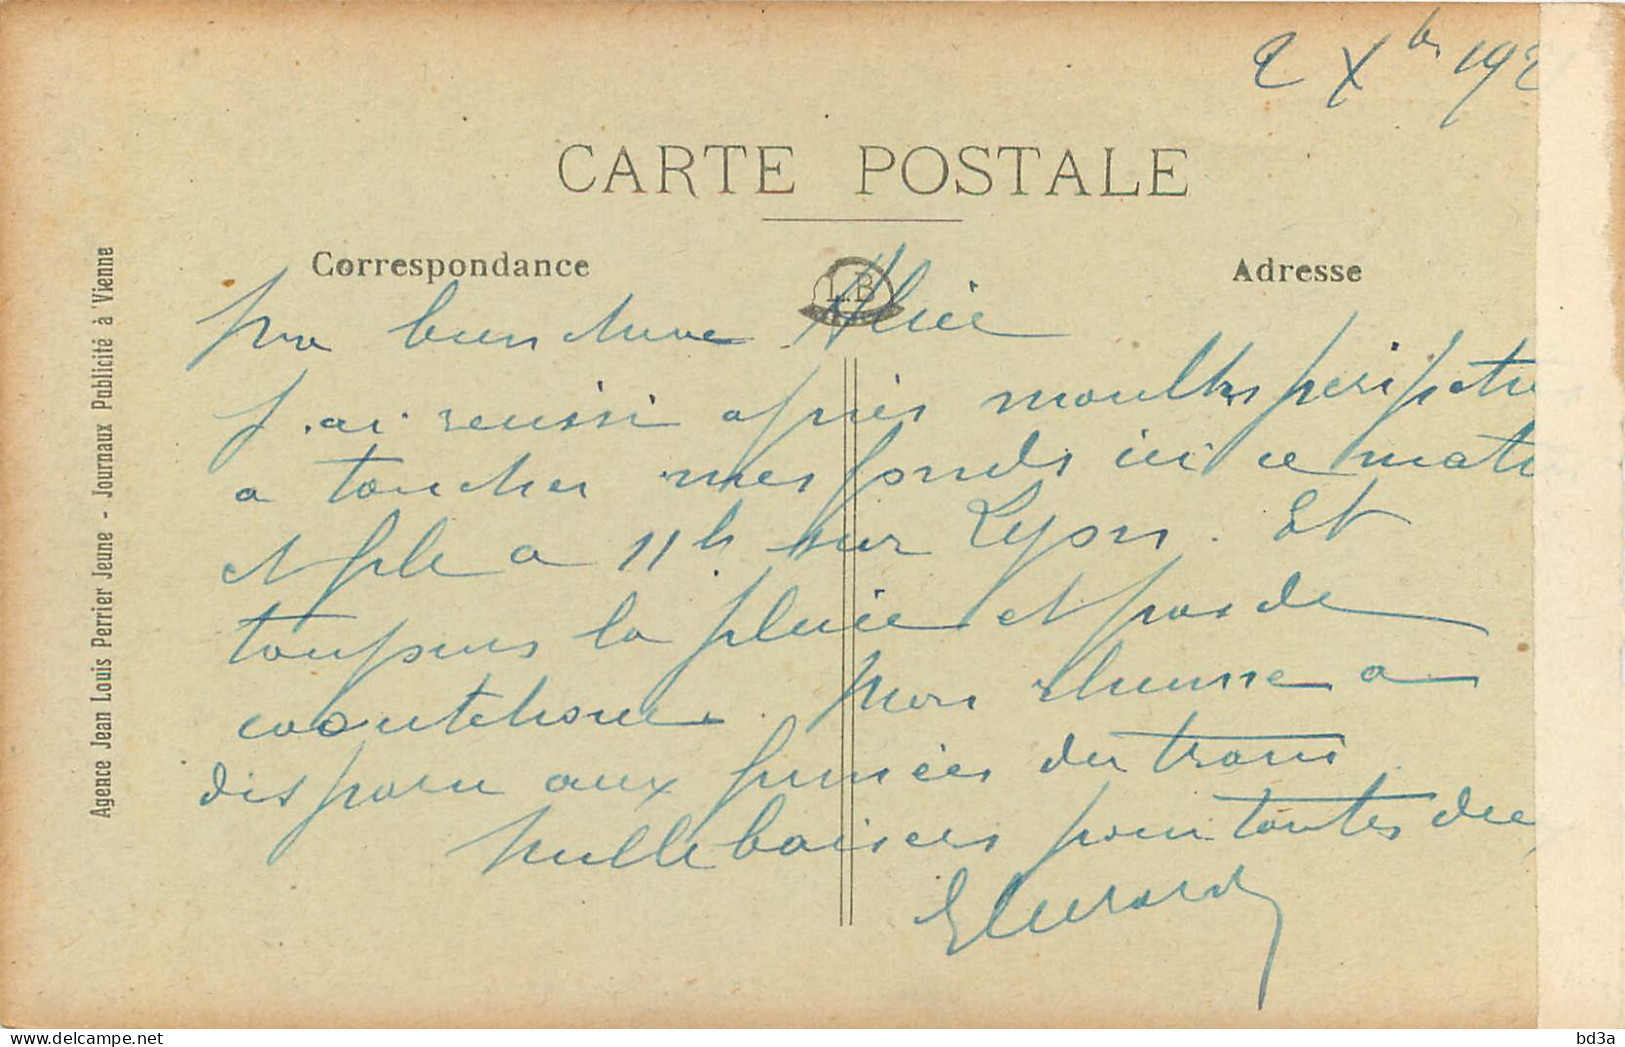 2 Xbr 192
CARTE POSTALE
Correspondance
Adresse
L.B
Ma bien chère Alice
J'ai reussi après moultes péripeties
a toucher mes fonds ici ce matin
et file a 11h sur Lyon. Et
toujours la pluie et pas de
caoutchouc. Mon rhume a
disparu aux fumées du train
Mille baisers pour toutes deu
Agence Jean Louis Perrier Jeune - Journaux Publicité à Vienne
delcampe.net
bd3a